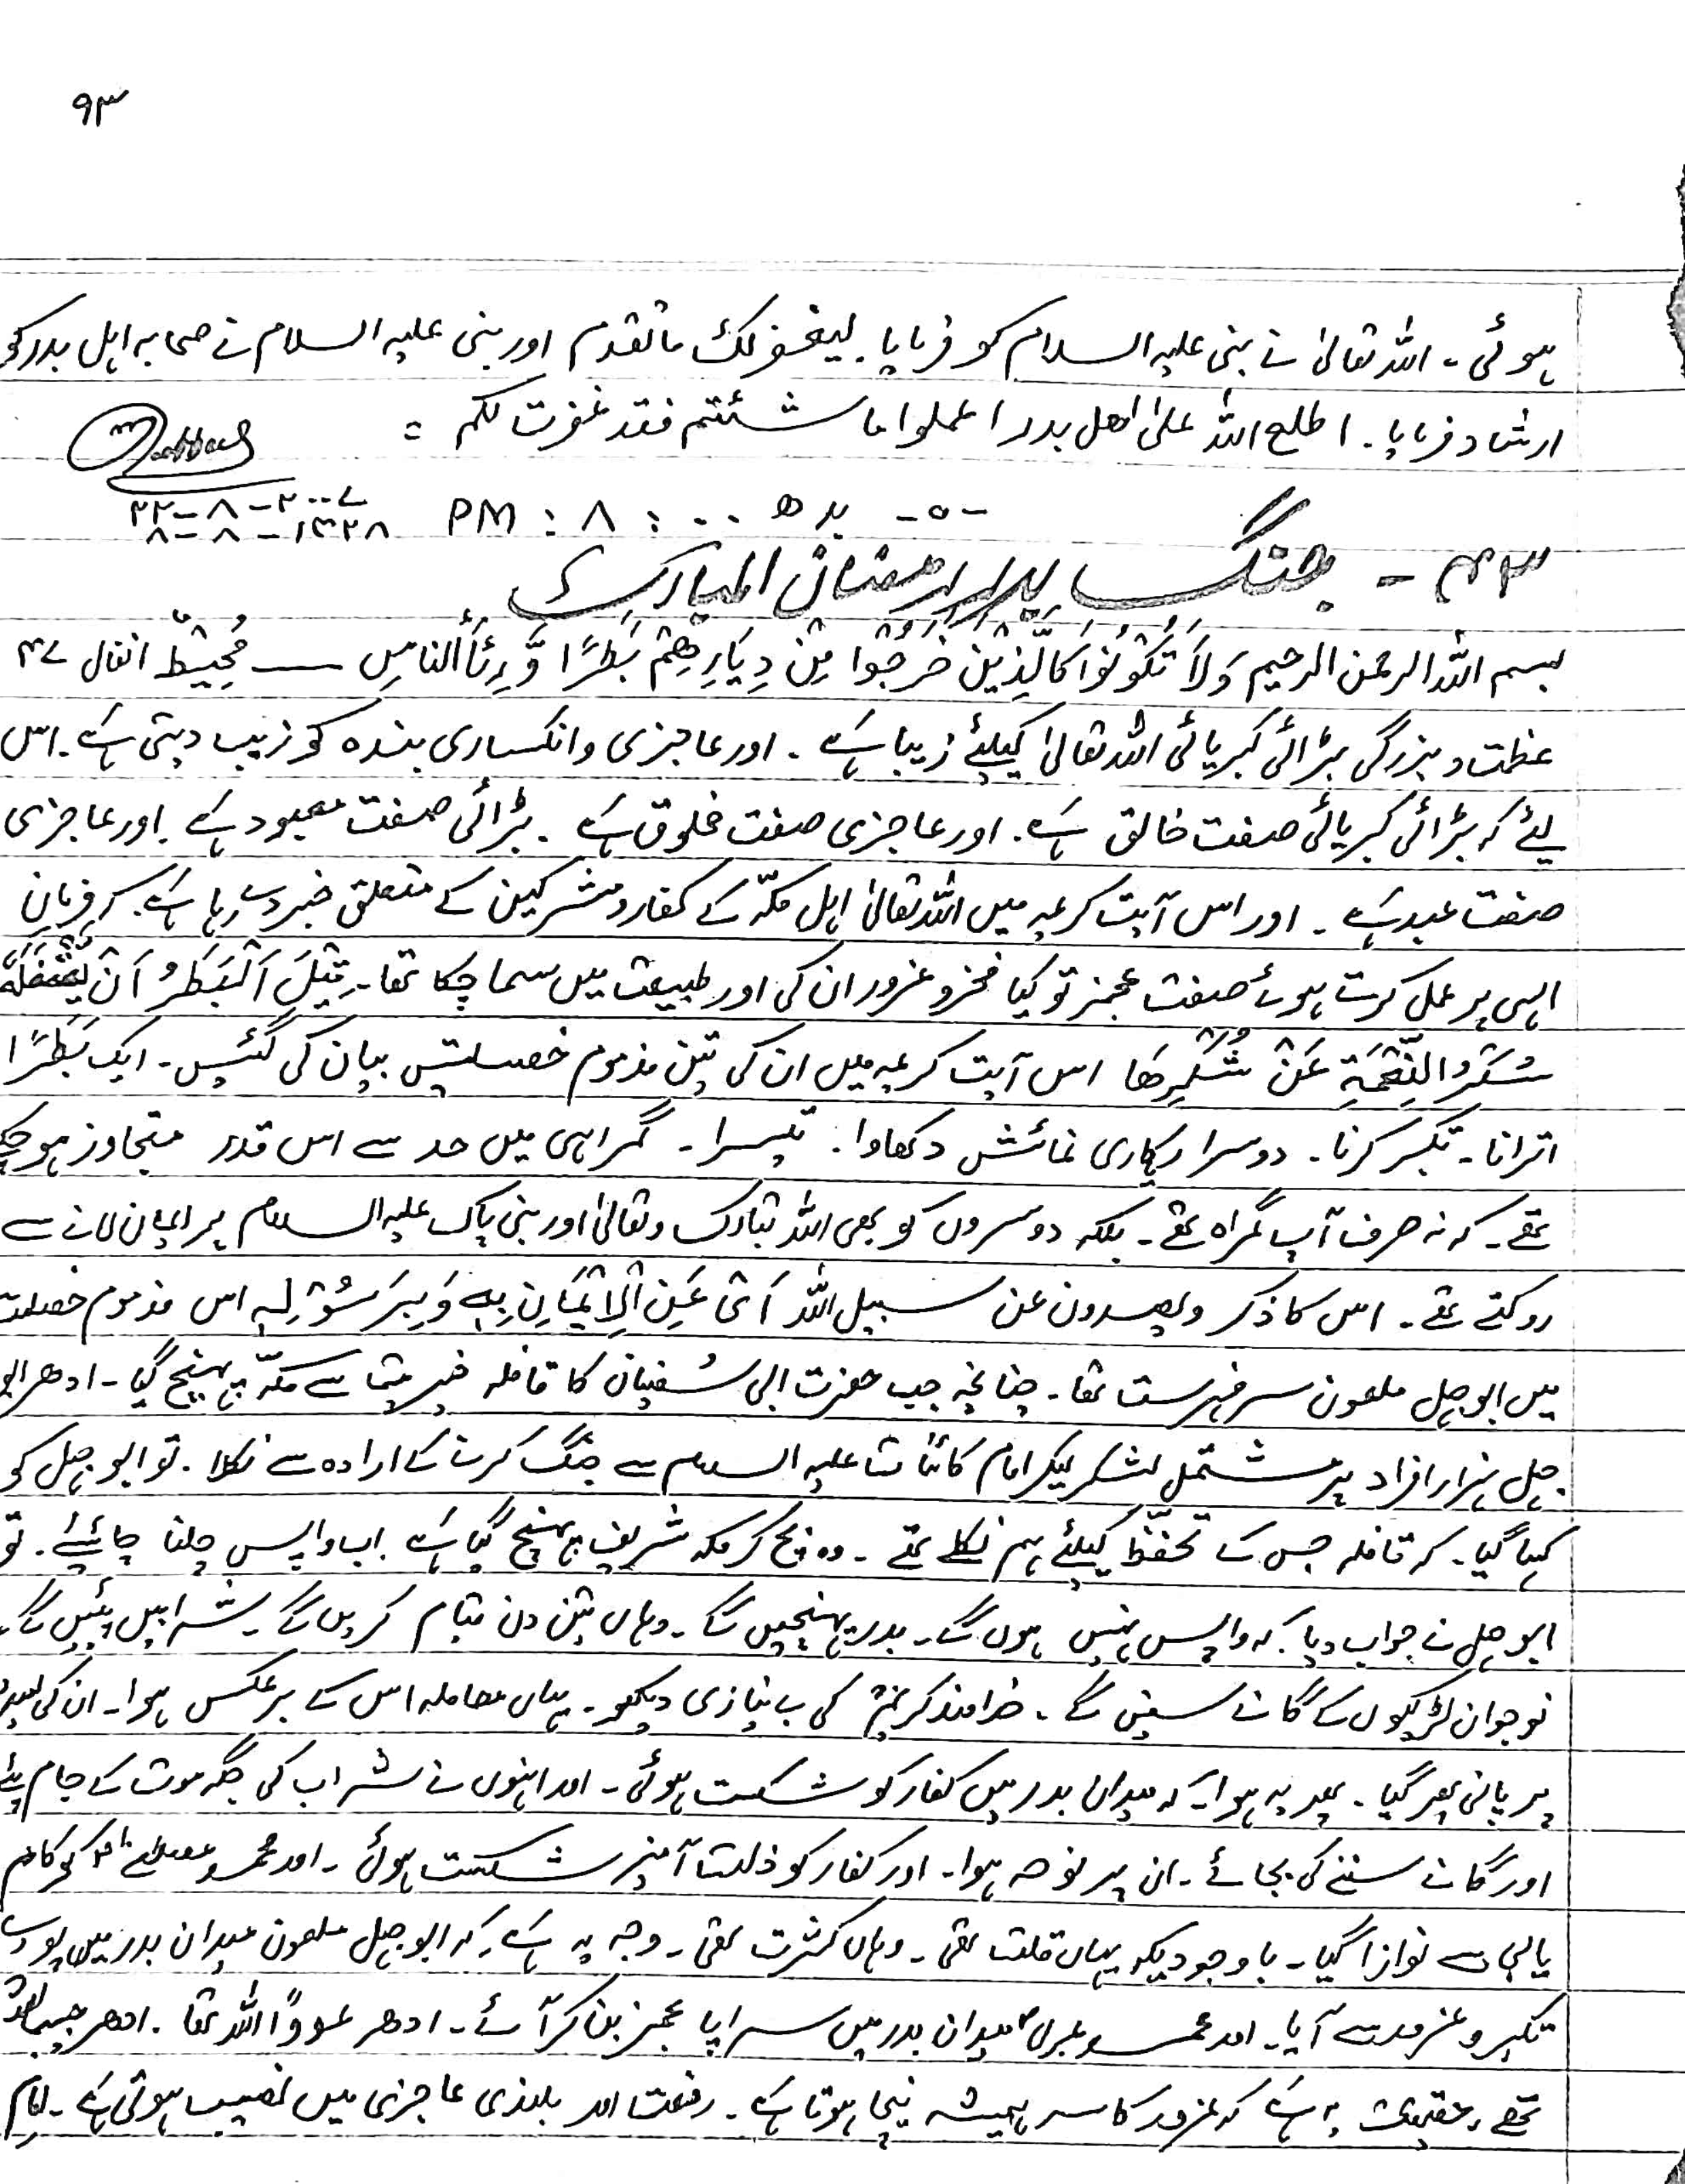 ۹۳
ہوئی۔ اللہ تعالیٰ نے نبی علیہ السلام کو فرمایا۔ لیغفر لک ما تقدم اور نبی علیہ السلام نے صحابہ اہل بدر کو
ارشاد فرمایا۔ اطلع اللہ علیٰ اھل بدر اعملوا ما شئتم فقد غفرت لکم =
-۵- بدھ ۰۰ : ۸ : PM ۲۲-۸-۲۰۰۷
۸-۸-۱۴۲۸
۴۳ - جنگ بدر رمضان المبارک
بسم اللہ الرحمن الرحیم وَلَا تَکُوْنُوْا کَالَّذِیْنَ خَرَجُوْا مِنْ دِیَارِھِمْ بَطَرًا وَّرِئَآءَ النَّاسِ — مُحِیْطٌ انفال ۴۷
عظمت و بزرگی بڑائی کبریائی اللہ تعالیٰ کیلئے زیبا ہے۔ اور عاجزی و انکساری بندہ کو زیب دیتی ہے۔ اس
لیئے کہ بڑائی کبریائی صفت خالق ہے۔ اور عاجزی صفت مخلوق ہے۔ بڑائی صفت معبود ہے۔ اور عاجزی
صفت عبد ہے۔ اور اس آیت کریمہ میں اللہ تعالیٰ اہل مکّہ کے کفار و مشرکین کے متعلق خبر دے رہا ہے۔ کہ فرمانِ
الہی پر عمل کرتے ہوئے صفت عجز تو کیا فخر و غرور ان کی اور طبیعت میں سما چکا تھا۔ قِیْلَ اَلْبَطَرُ اَنْ یَشْغَلَہٗ
سُکْرُ النِّعْمَۃِ عَنْ شُکْرِھَا اس آیت کریمہ میں ان کی تین مذموم خصلتیں بیان کی گئیں۔ ایک بَطَرًا
اترانا۔ تکبر کرنا۔ دوسرا ریاکاری نمائش دکھاوا۔ تیسرا۔ گمراہی میں حد سے اس قدر متجاوز ہو چکے
تھے۔ کہ نہ صرف آپ گمراہ تھے۔ بلکہ دوسروں کو بھی اللہ تبارک و تعالیٰ اور نبی پاک علیہ السلام پر ایمان لانے سے
روکتے تھے۔ اس کا ذکر ویصدون عن سبیل اللہ اَیْ عَنِ الْاِیْمَانِ بِہٖ وَبِرَسُوْلِہٖ اس مذموم خصلت
میں ابوجہل ملعون سر فہرست تھا۔ چنانچہ جب حضرت ابی سُفیان کا قافلہ خیریت سے مکّہ پہنچ گیا۔ ادھر ابو
جہل ہزار افراد پر مشتمل لشکر لیکر امام کائنات علیہ السلام سے جنگ کرنے کے ارادہ سے نکلا۔ تو ابو جہل کو
کہا گیا۔ کہ قافلہ جس کے تحفّظ کیلئے ہم نکلے تھے۔ وہ بچ کر مکہ شریف پہنچ گیا ہے۔ اب واپس چلنا چاہئے۔ تو
ابو جہل نے جواب دیا۔ کہ واپس نہیں ہوں گے۔ بدر پہنچیں گے۔ وہاں تین دن قیام کریں گے۔ شرابیں پئیں گے۔
نوجوان لڑکیوں کے گانے سنیں گے۔ خداوند کریم کی بے نیازی دیکھو۔ یہاں معاملہ اس کے برعکس ہوا۔ ان کی امید
پر پانی پھر گیا۔ پھر یہ ہوا۔ کہ میدان بدر میں کفار کو شکست ہوئی۔ اور انہوں نے شراب کی جگہ موت کے جام پئے
اور گانے سننے کی بجائے۔ ان پر نوحہ ہوا۔ اور کفار کو ذلت آمیز شکست ہوئی۔ اور محمد مصطفےٰ کو کام
یابی سے نوازا گیا۔ باوجودیکہ یہاں قلت تھی۔ وہاں کثرت تھی۔ وجہ یہ ہے۔ کہ ابو جہل ملعون میدان بدر میں پورے
تکبر و غرور سے آیا۔ اور محمد عربی میدان بدر میں سراپا عجز بن کر آئے۔ ادھر عدوًّا اللہ تھا۔ ادھر حبیب اللہ
تھے۔ حقیقت یہ ہے کہ غرور کا سر ہمیشہ نیچا ہوتا ہے۔ رفعت اور بلندی عاجزی میں نصیب ہوتی ہے۔ امام